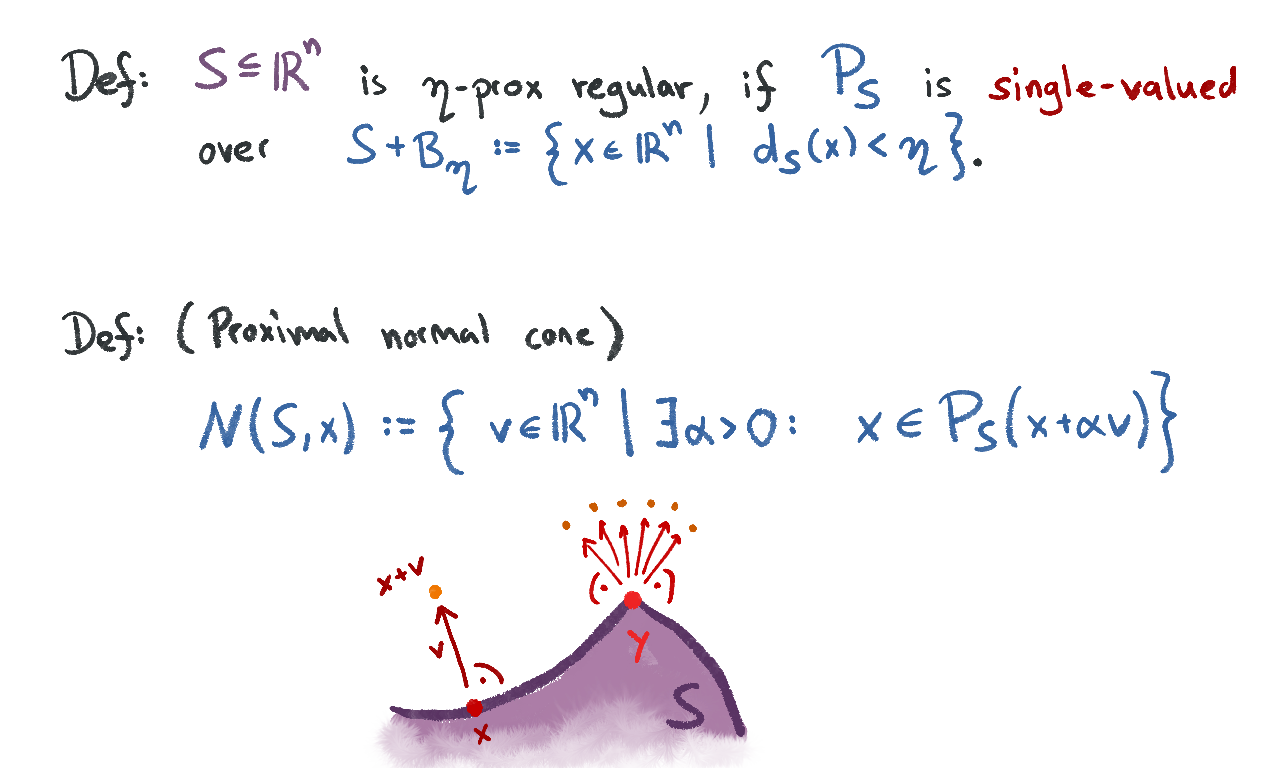 Def: S ⊆ ℝⁿ is η-prox regular, if P_S is single-valued
over S + B_η := { x ∈ ℝⁿ | d_S(x) < η }.
Def: (Proximal normal cone)
N(S,x) := { v ∈ ℝⁿ | ∃α > 0: x ∈ P_S(x+αv) }
x+v
v
y
S
x